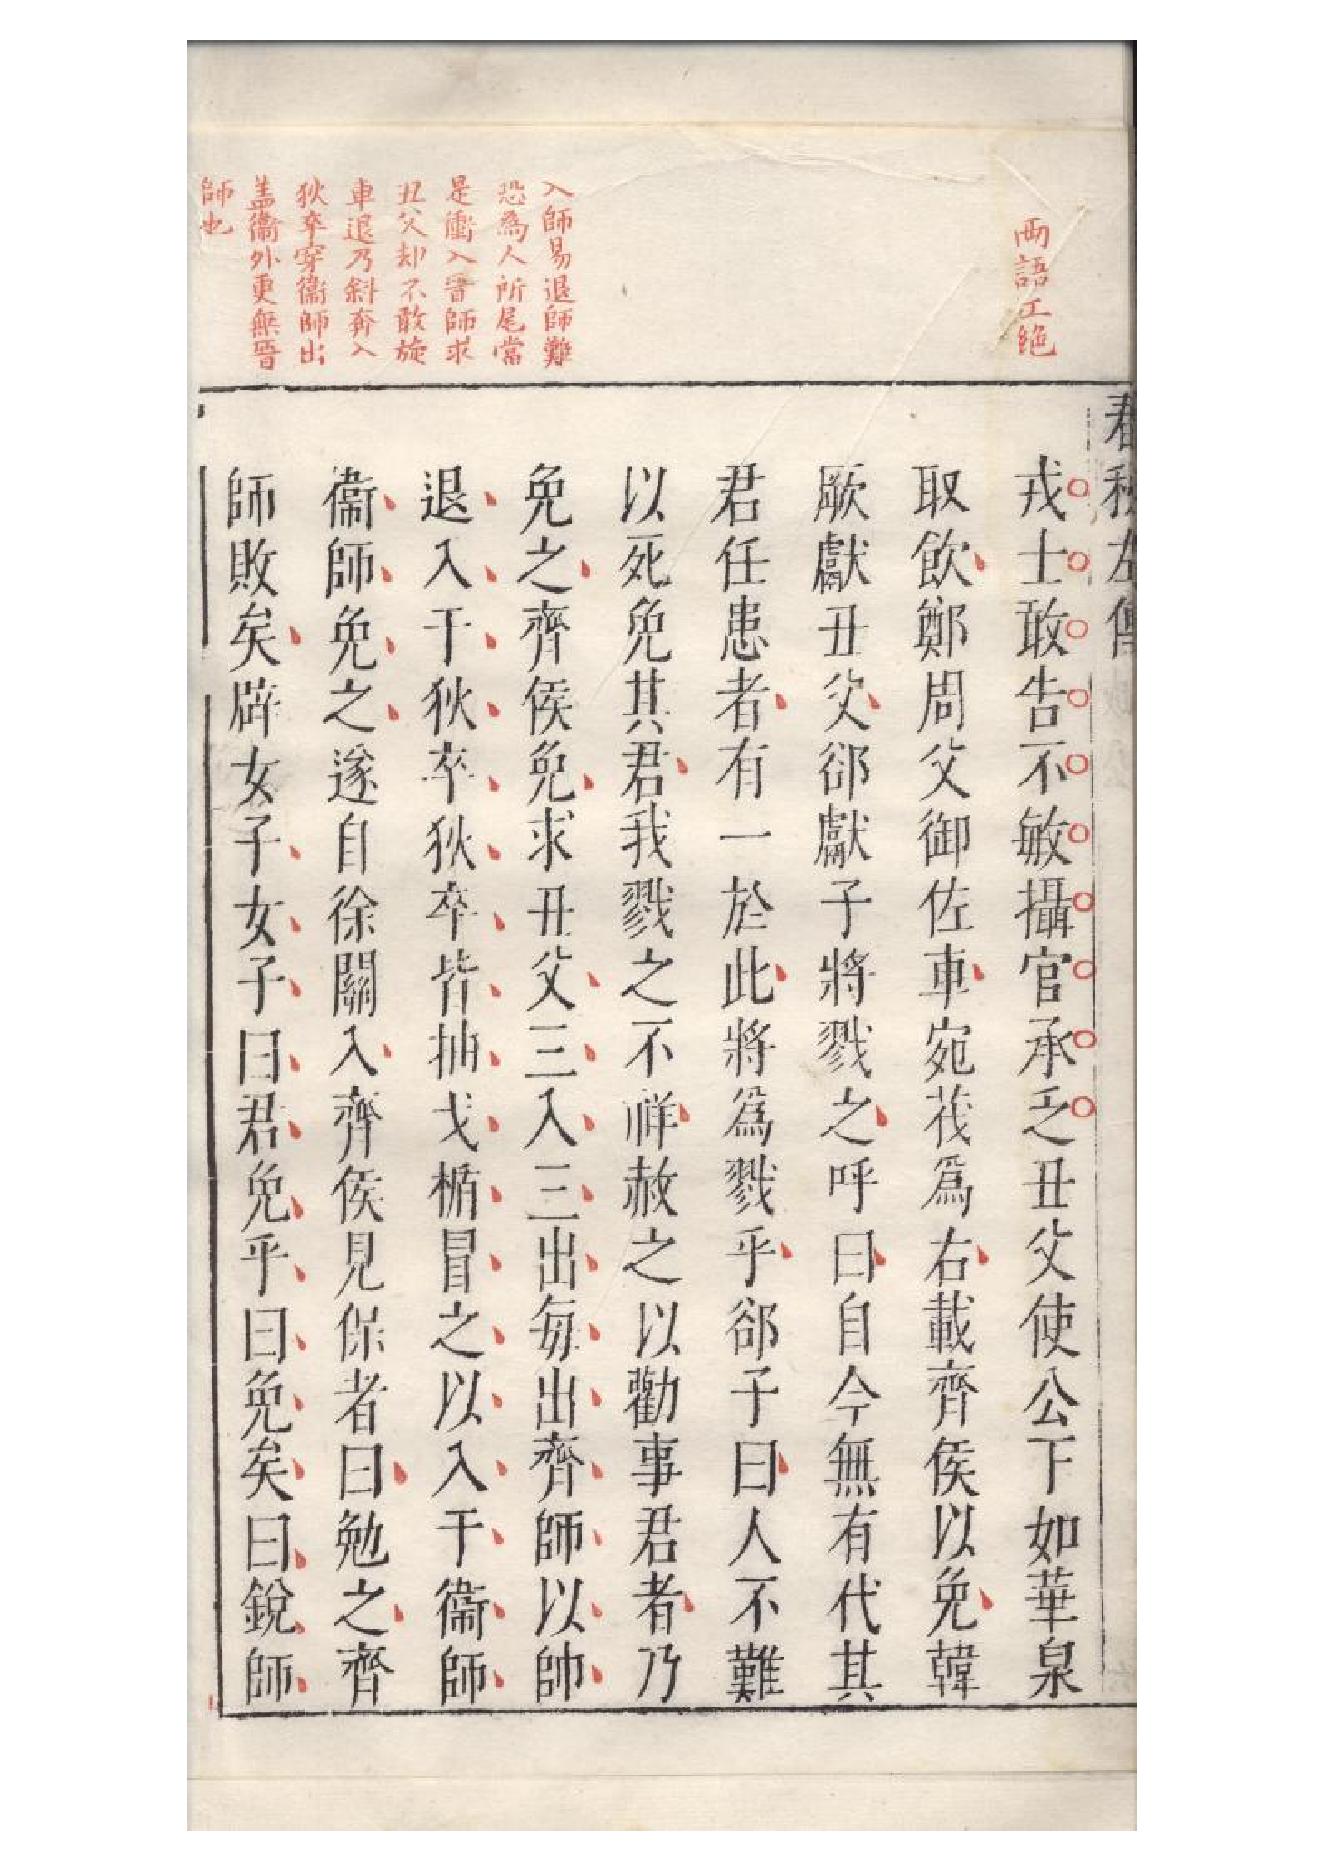 春秋左傳
兩語工絶
戎士敢告不敏攝官承乏丑父使公下如華泉
取飲鄭周父御佐車宛茷爲右載齊侯以免韓
厥獻丑父郤獻子將戮之呼曰自今無有代其
君任患者有一於此將爲戮乎郤子曰人不難
以死免其君我戮之不祥赦之以勸事君者乃
免之齊侯免求丑父三入三出每出齊師以帥
退入于狄卒狄卒皆抽戈楯冒之以入于衞師
衞師免之遂自徐關入齊侯見保者曰勉之齊
師敗矣辟女子女子曰君免乎曰免矣曰銳師
入師易退師難
恐爲人所尾當
是衝入晉師求
丑父却不敢旋
車退乃斜奔入
狄卒穿衞師出
盖衞外更無晉
師也